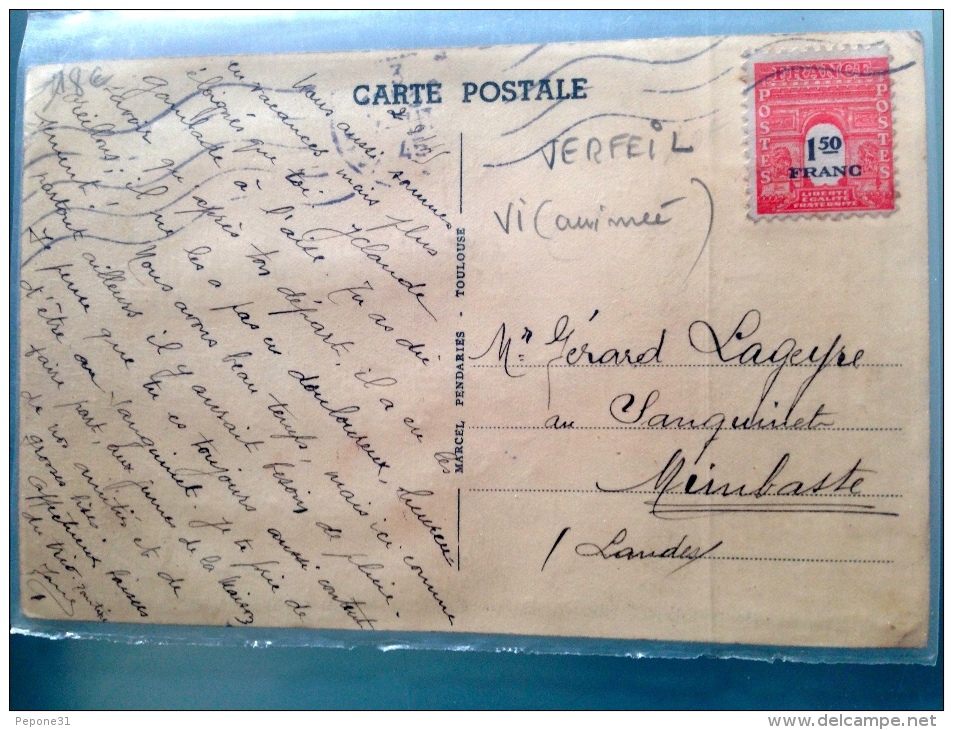 CARTE POSTALE
FRANCE
POSTES
POSTES
1 50
FRANC
LIBERTE
EGALITE
FRATERNITE
VERFEIL
Vi (animée)
MARCEL PENDARIES - TOULOUSE
Mr Gérard Lageyre
au Sanguinet
Mimbaste
Landes
Nous aussi sommes
en vacances mais plus
éloignés que toi! Claude
gambade à l'aise. Tu as dû
savoir qu'après ton départ, il a eu les
oreillons; il ne les a pas eu douloureux, heureu
sement. Nous avons beau temps, mais ici comme
partout ailleurs il y aurait besoin de pluie.
Je pense que tu es toujours aussi content
d'être au Sanguinet. Je te prie de
faire part, aux gens de la maison
de nos amitiés et de
grosses bises
affectueux baisers
du trio
Pepone31
www.delcampe.net